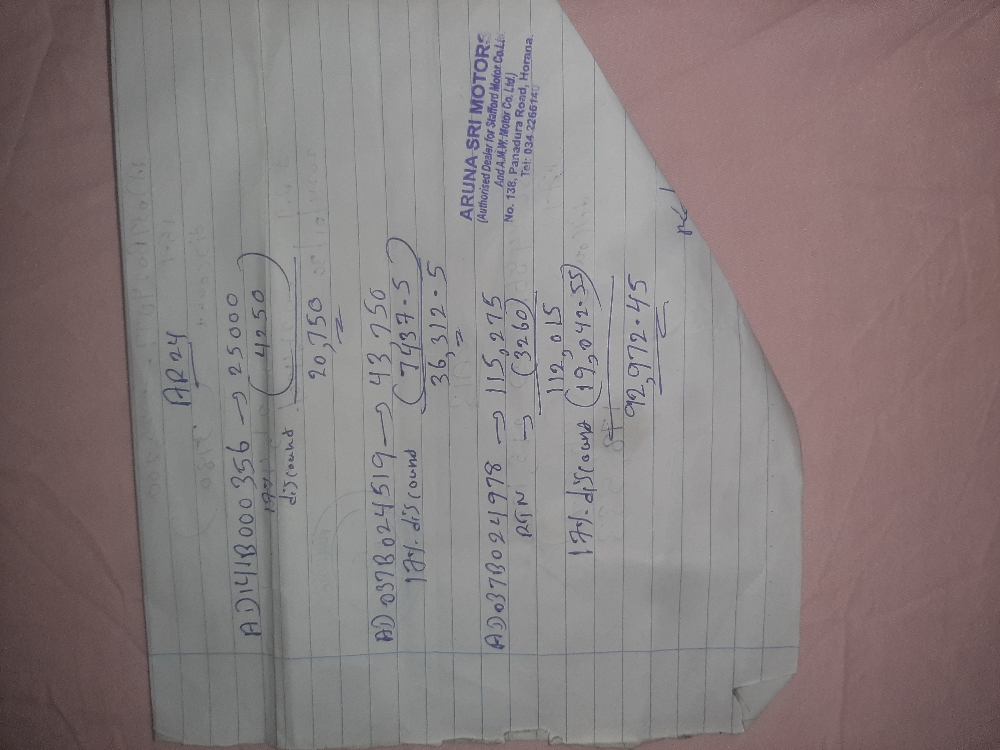 AR24
AD141B000356 → 25000
17% discount (4250)
20,750
AD037B024519 → 43,750
17% discound (7437.5)
36,312.5
AD037B024978 → 115,275
RTN → (3260)
112,015
17% discound (19,042.55)
92,972.45
ARUNA SRI MOTORS
(Authorised Dealer for Stafford Motor Co.Ltd.
And A.M.W. Motor Co. Ltd.)
No. 138, Panadura Road, Horana.
Tel: 034 2266140